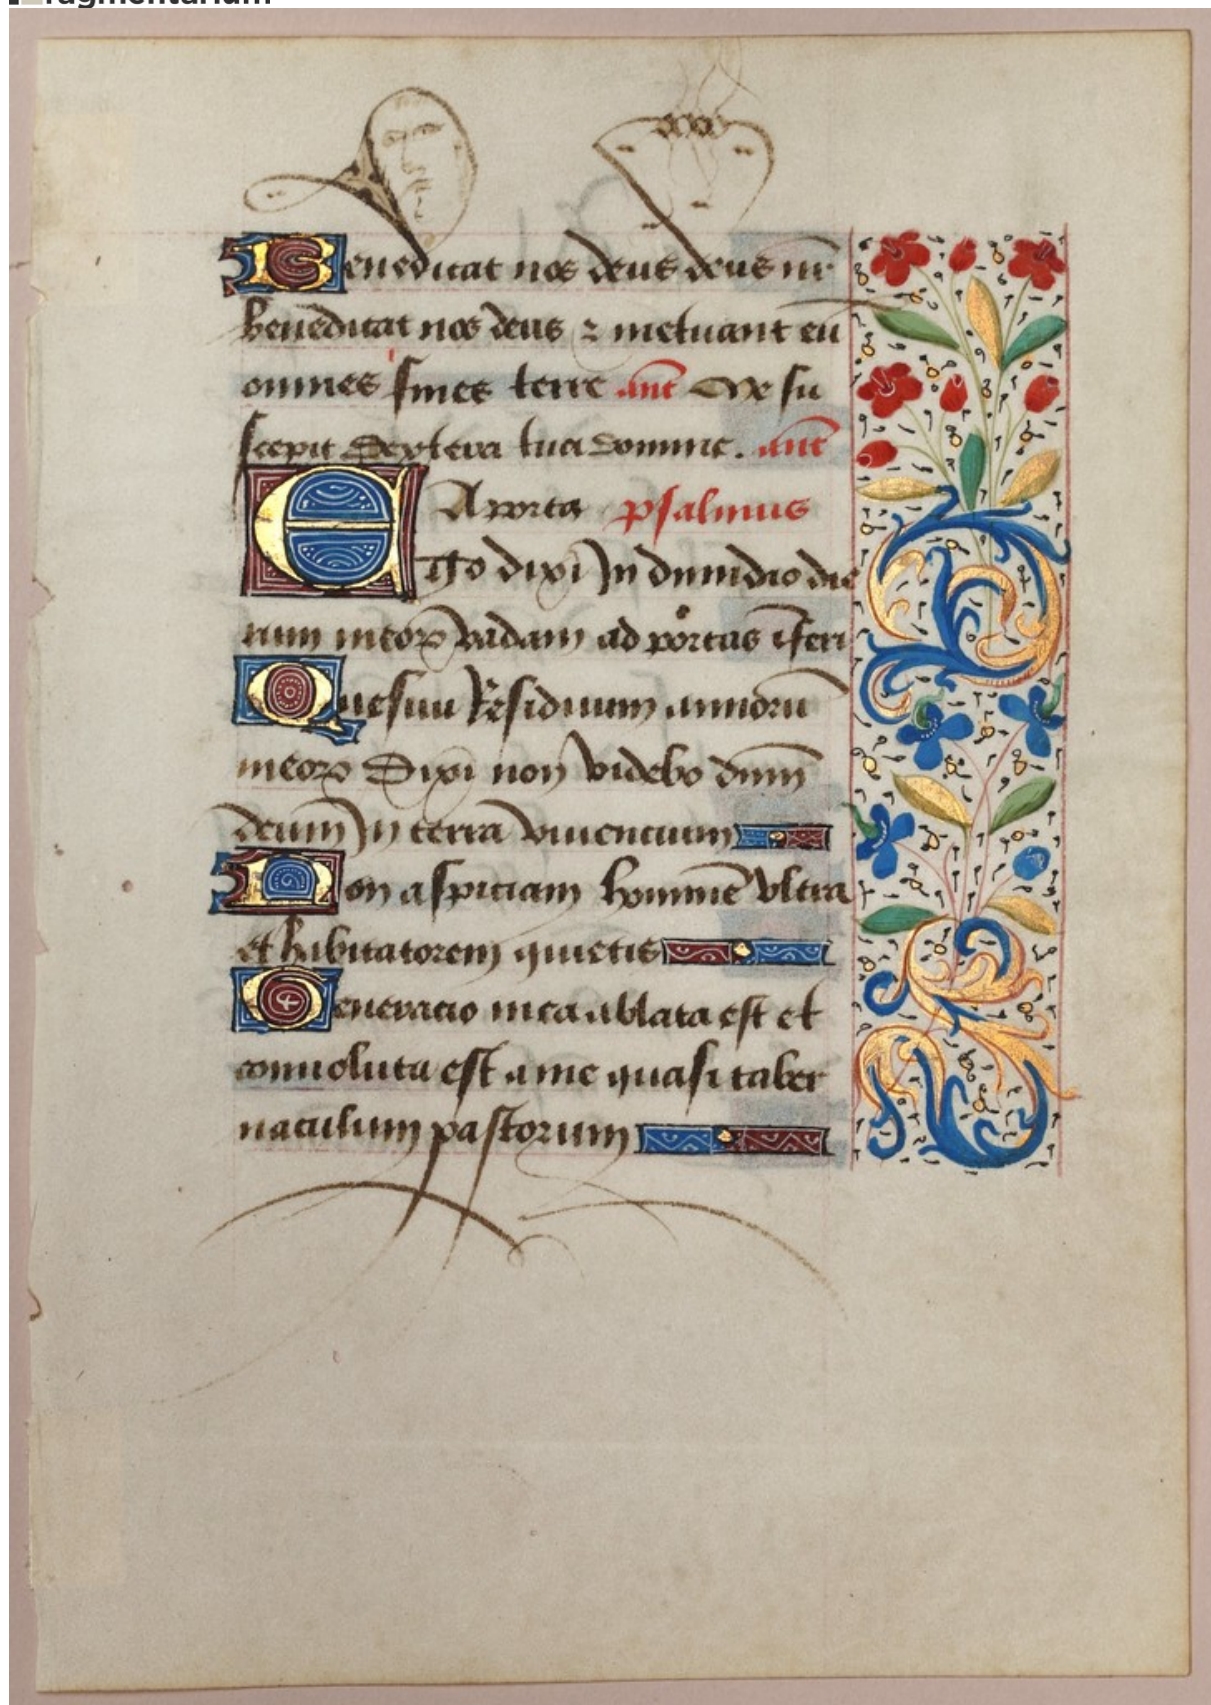 Fragmentarium
Benedicat nos deus deus nr̄
benedicat nos deus ⁊ metuant eū
omnes fines terre ant̄ Me su
scepit Dextera tua domine. ant̄
A porta psalmus
Ego dixi In dimidio die
rum meoꝝ vadam ad portas īferi
Quesiui Residuum annorū
meoꝝ Dixi non videbo dn̄m
deum In terra viuencium
Non aspiciam hominē vltra
et habitatorem quietis
Generacio mea ablata est et
conuoluta est a me quasi taber
naculum pastorum